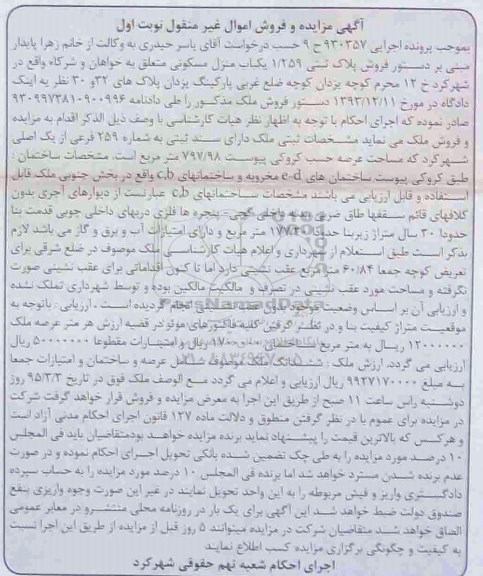 آگهی مزایده و فروش اموال غیر منقول نوبت اول
بموجب پرونده اجرایی ۹۳۰۳۵۷ ح ۹ حسب درخواست آقای یاسر حیدری به وکالت از خانم زهرا پایدار
مبنی بر دستور فروش پلاک ثبتی ۱/۲۵۹ یکباب منزل مسکونی متعلق به خواهان و شرکاء واقع در
شهرکرد خ ۱۲ محرم کوچه یزدان کوچه ضلع غربی پارکینگ یزدان پلاک های ۳۲و ۳۰ نظر به اینک
دادگاه در مورخ ۱۳۹۳/۱۲/۱۱ دستور فروش ملک مذکور را طی دادنامه ۹۰۰۹۹۶-۹۳۰۹۹۷۳۸۱
صادر نموده که اجرای احکام با توجه به اظهار نظر هیات کارشناسی با وصف ذیل الذکر اقدام به مزایده
و فروش ملک می نماید مشخصات ثبتی ملک دارای سند ثبتی به شماره ۲۵۹ فرعی از یک اصلی
شهرکرد که مساحت عرصه حسب کروکی پیوست ۷۹۷/۹۸ متر مربع است. مشخصات ساختمان :
طبق کروکی پیوست ساختمان های e-d مخروبه و ساختمانهای c,b واقع در بخش جنوبی ملک قابل
استفاده و قابل ارزیابی می باشند مشخصات ساختمانهای c,b عبارتست از دیوارهای آجری بدون
کلافهای قائم سقفها طاق ضربی بدنه داخلی گچی - پنجره ها فلزی دربهای داخلی چوبی قدمت بنا
حدودا ۳۰ سال متراژ زیربنا حدودا ۱۷۷/۳۰ متر مربع و دارای امتیازات آب و برق و گاز می باشد لازم
بذکر است طبق استعلام از شهرداری و اعلام هیات کارشناسی ملک موصوف در ضلع شرقی برای
تعریض کوچه جمعا ۶۰/۸۴ متر مربع عقب نشینی دارد اما تا کنون اقداماتی برای عقب نشینی صورت
نگرفته و مساحت مورد عقب نشینی در تصرف و مالکیت مالکین بوده و توسط شهرداری تملک نشده
و ارزیابی آن بر اساس وضعیت موجود بدون عقب نشینی انجام گردیده است . ارزیابی : باتوجه به
موقعیت متراژ کیفیت بنا و در نظر گرفتن کلیه فاکتورهای موثر در قضیه ارزش هر متر عرصه ملک
۱۲۰۰۰۰۰۰ ریال به متر مربع ساختمان ریال و امتیازات مقطوعا ۵۰۰۰۰۰۰۰ ریال
ارزیابی می گردد. ارزش ملک : ششدانگ ملک موصوف شامل عرصه و ساختمان و امتیازات جمعا
به مبلغ ۹۹۲۷۱۷۰۰۰۰ ریال ارزیابی و اعلام می گردد مع الوصف ملک فوق در تاریخ ۹۵/۳/۳ روز
دوشنبه راس ساعت ۱۱ صبح از طریق این اجرا به معرض مزایده و فروش قرار خواهد گرفت شرکت
در مزایده برای عموم با در نظر گرفتن منطوق و دلالت ماده ۱۲۷ قانون اجرای احکام مدنی آزاد است
و هرکس که بالاترین قیمت را پیشنهاد نماید برنده مزایده خواهد بودمتقاضیان باید فی المجلس
۱۰ درصد مورد مزایده را به طی چک تضمین شده بانکی تحویل اجرای احکام نموده و در صورت
عدم برنده شدن مسترد خواهد شد اما برنده فی المجلس ۱۰ درصد مورد مزایده را به حساب سپرده
دادگستری واریز و فیش مربوطه را به این واحد تحویل نمایند در غیر این صورت وجوه واریزی بنفع
صندوق دولت ضبط خواهد شد این آگهی برای یک بار در روزنامه محلی منتشرو در معابر عمومی
الصاق خواهد شد متقاضیان شرکت در مزایده میتوانند ۵ روز قبل از مزایده از طریق این اجرا نسبت
به کیفیت و چگونگی برگزاری مزایده کسب اطلاع نمایند
اجرای احکام شعبه نهم حقوقی شهرکرد